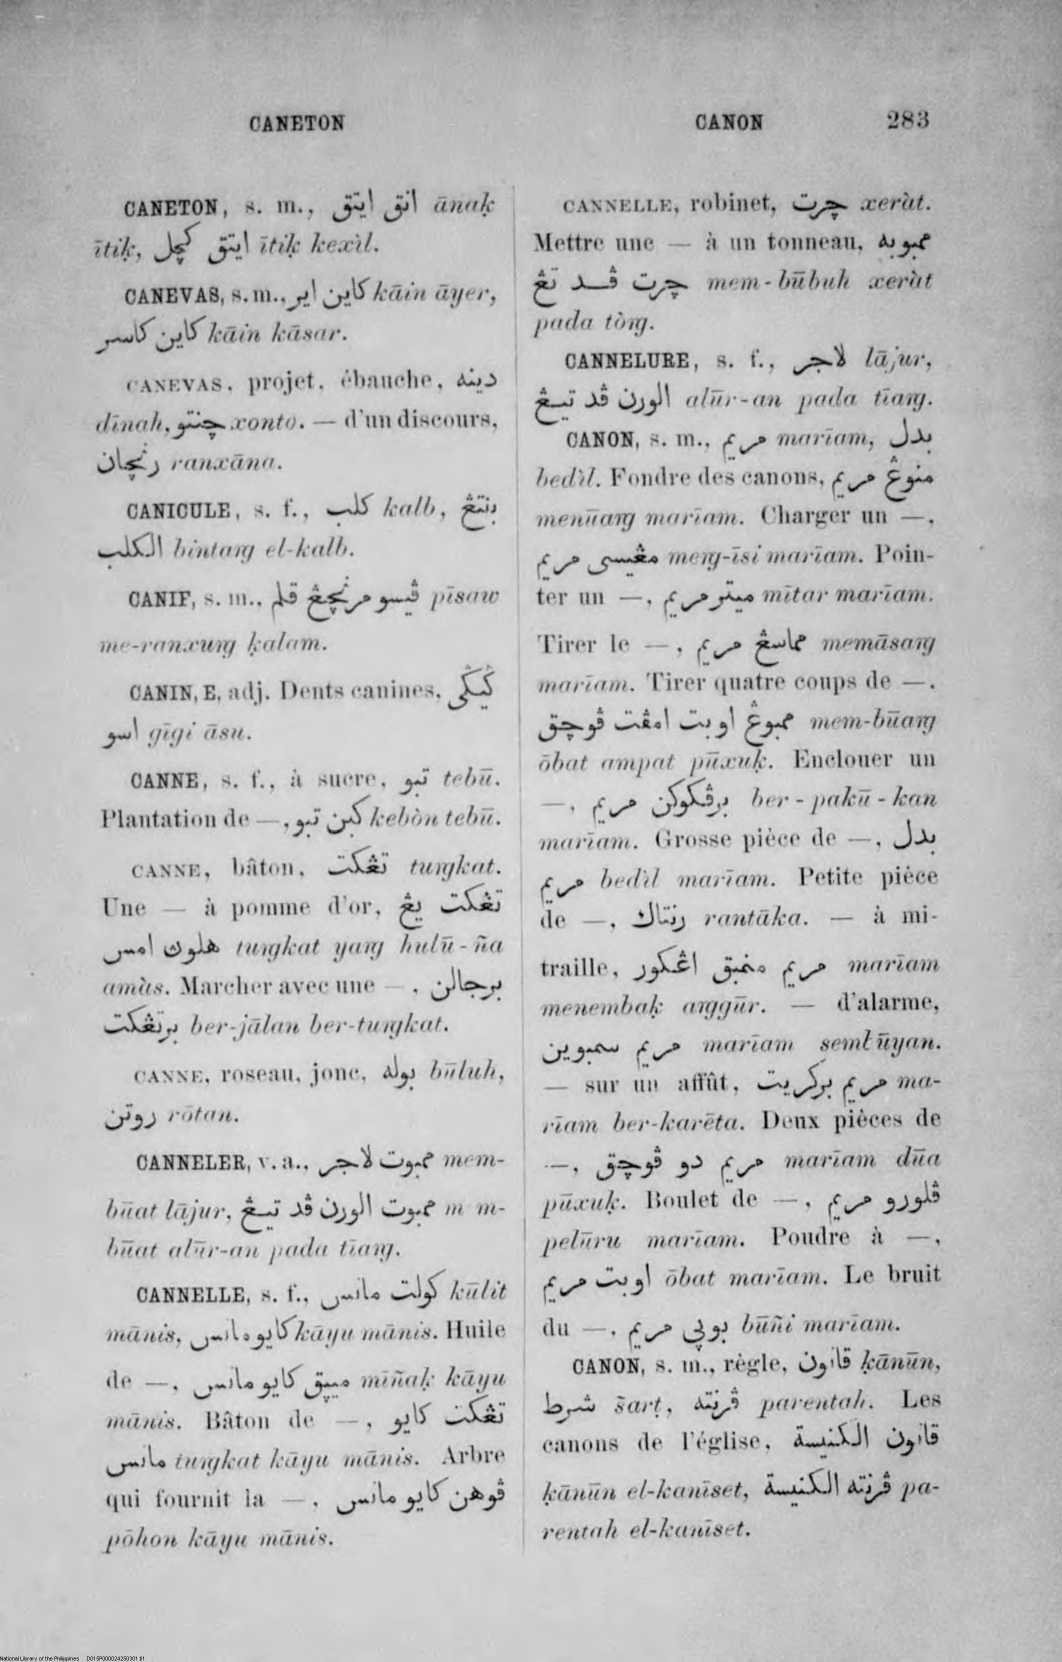 CANETON
CANON
283
CANETON, s. m., انق ايتق ānaḳ
ītiḳ, ايتق كچل ītiḳ kexìl.
CANEVAS, s. m., كاين اير kāin āyer,
كاين كاسر kāin kāsar.
CANEVAS, projet, ébauche, دينه
dīnah, چنتو xonto. — d'un discours,
رنچان ranxāna.
CANICULE, s. f., كلب kalb, بنتڠ
الكلب bintaꞑ el-kalb.
CANIF, s. m., ڤيسو مرنچڠ قلم pīsaw
me-ranxuꞑ ḳalam.
CANIN, E, adj. Dents canines, ݢيݢى
اسو gīgi āsu.
CANNE, s. f., à sucre, تبو tebū.
Plantation de —, كبن تبو kebòn tebū.
CANNE, bâton, تڠكت tuꞑkat.
Une — à pomme d'or, تڠكت يڠ
هلوك امس tuꞑkat yaꞑ hulū-ña
amàs. Marcher avec une —, برجالن
برتڠكت ber-jālan ber-tuꞑkat.
CANNE, roseau, jonc, بوله būluh,
روتن rōtan.
CANNELER, v. a., ممبوت لاجر mem-
būat lājur, ممبوت الورن ڤد تيڠ m m-
būat alūr-an pada tīaꞑ.
CANNELLE, s. f., كولت مانس kūlit
mānis, كايو مانس kāyu mānis. Huile
de —, ميپق كايو مانس mīñaḳ kāyu
mānis. Bâton de —, تڠكت كايو
مانس tuꞑkat kāyu mānis. Arbre
qui fournit la —, ڤوهن كايو مانس
pōhon kāyu mānis.
CANNELLE, robinet, چرت xeràt.
Mettre une — à un tonneau, ممبوبه
چرت ڤد تڠ mem-būbuh xeràt
pada tòꞑ.
CANNELURE, s. f., لاجر lājur,
الورن ڤد تيڠ alūr-an pada tīaꞑ.
CANON, s. m., مريم marīam, بدل
bedìl. Fondre des canons, منوڠ مريم
menūaꞑ marīam. Charger un —,
مڠيسى مريم meꞑ-īsi marīam. Poin-
ter un —, ميتر مريم mītar marīam.
Tirer le —, مماسڠ مريم memāsaꞑ
marīam. Tirer quatre coups de —,
ممبوڠ اوبت امڤت ڤوچق mem-būaꞑ
ōbat ampat pūxuḳ. Enclouer un
—, برڤكوكن مريم ber-pakū-kan
marīam. Grosse pièce de —, بدل
مريم bedìl marīam. Petite pièce
de —, رنتاك rantāka. — à mi-
traille, مريم منمبق اڠݢور marīam
menembaḳ aꞑgūr. — d'alarme,
مريم سمبوين marīam sembūyan.
— sur un affût, مريم بركريت ma-
rīam ber-karēta. Deux pièces de
—, مريم دو ڤوچق marīam dūa
pūxuḳ. Boulet de —, ڤلورو مريم
pelūru marīam. Poudre à —,
اوبت مريم ōbat marīam. Le bruit
du —, بوپي مريم būñi marīam.
CANON, s. m., règle, قانون ḳānūn,
شرط šarṭ, ڤرنته parentah. Les
canons de l'église, قانون الكنيسة
ḳānūn el-kanīset, ڤرنته الكنيسة pa-
rentah el-kanīset.
National Library of the Philippines